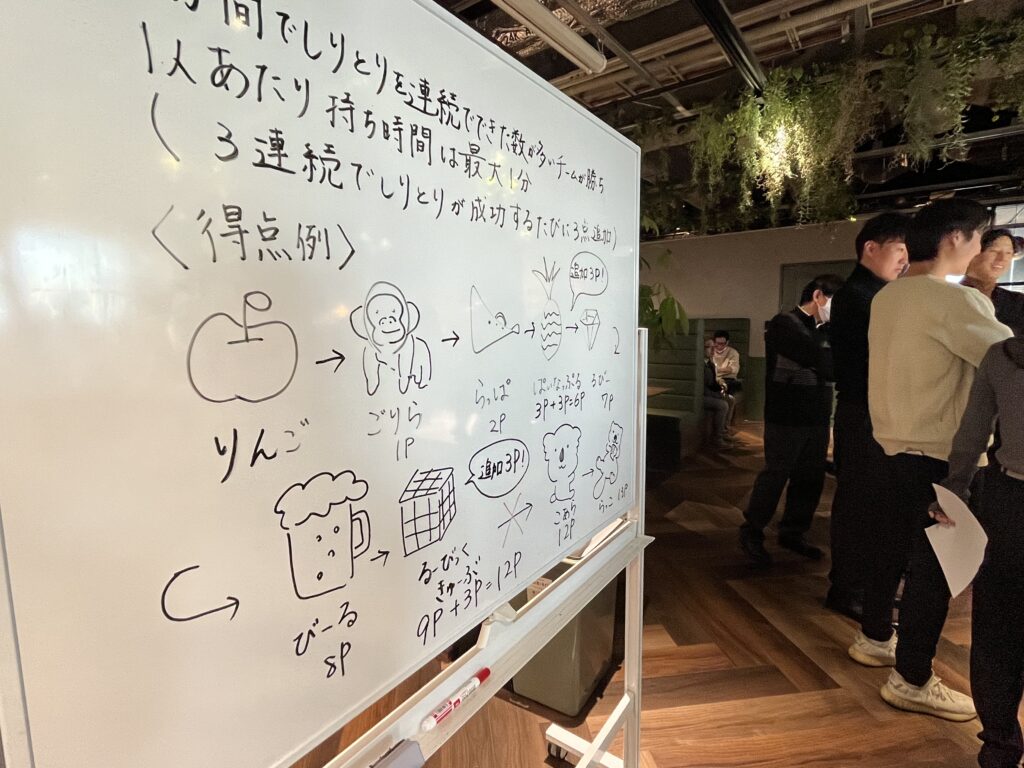 分間でしりとりを連続でできた数が多いチームが勝ち
1人あたり持ち時間は最大1分
( 3連続でしりとりが成功するたびに3点追加)
〈得点例〉
追加3P!
りんご
ごりら
1P
らっぱ
2P
ぱいなっぷる
3P+3P=6P
るびー
7P
びーる
8P
るーびっく
きゅーぶ
9P+3P=12P
追加3P!
こあら
12P
らっこ 13P